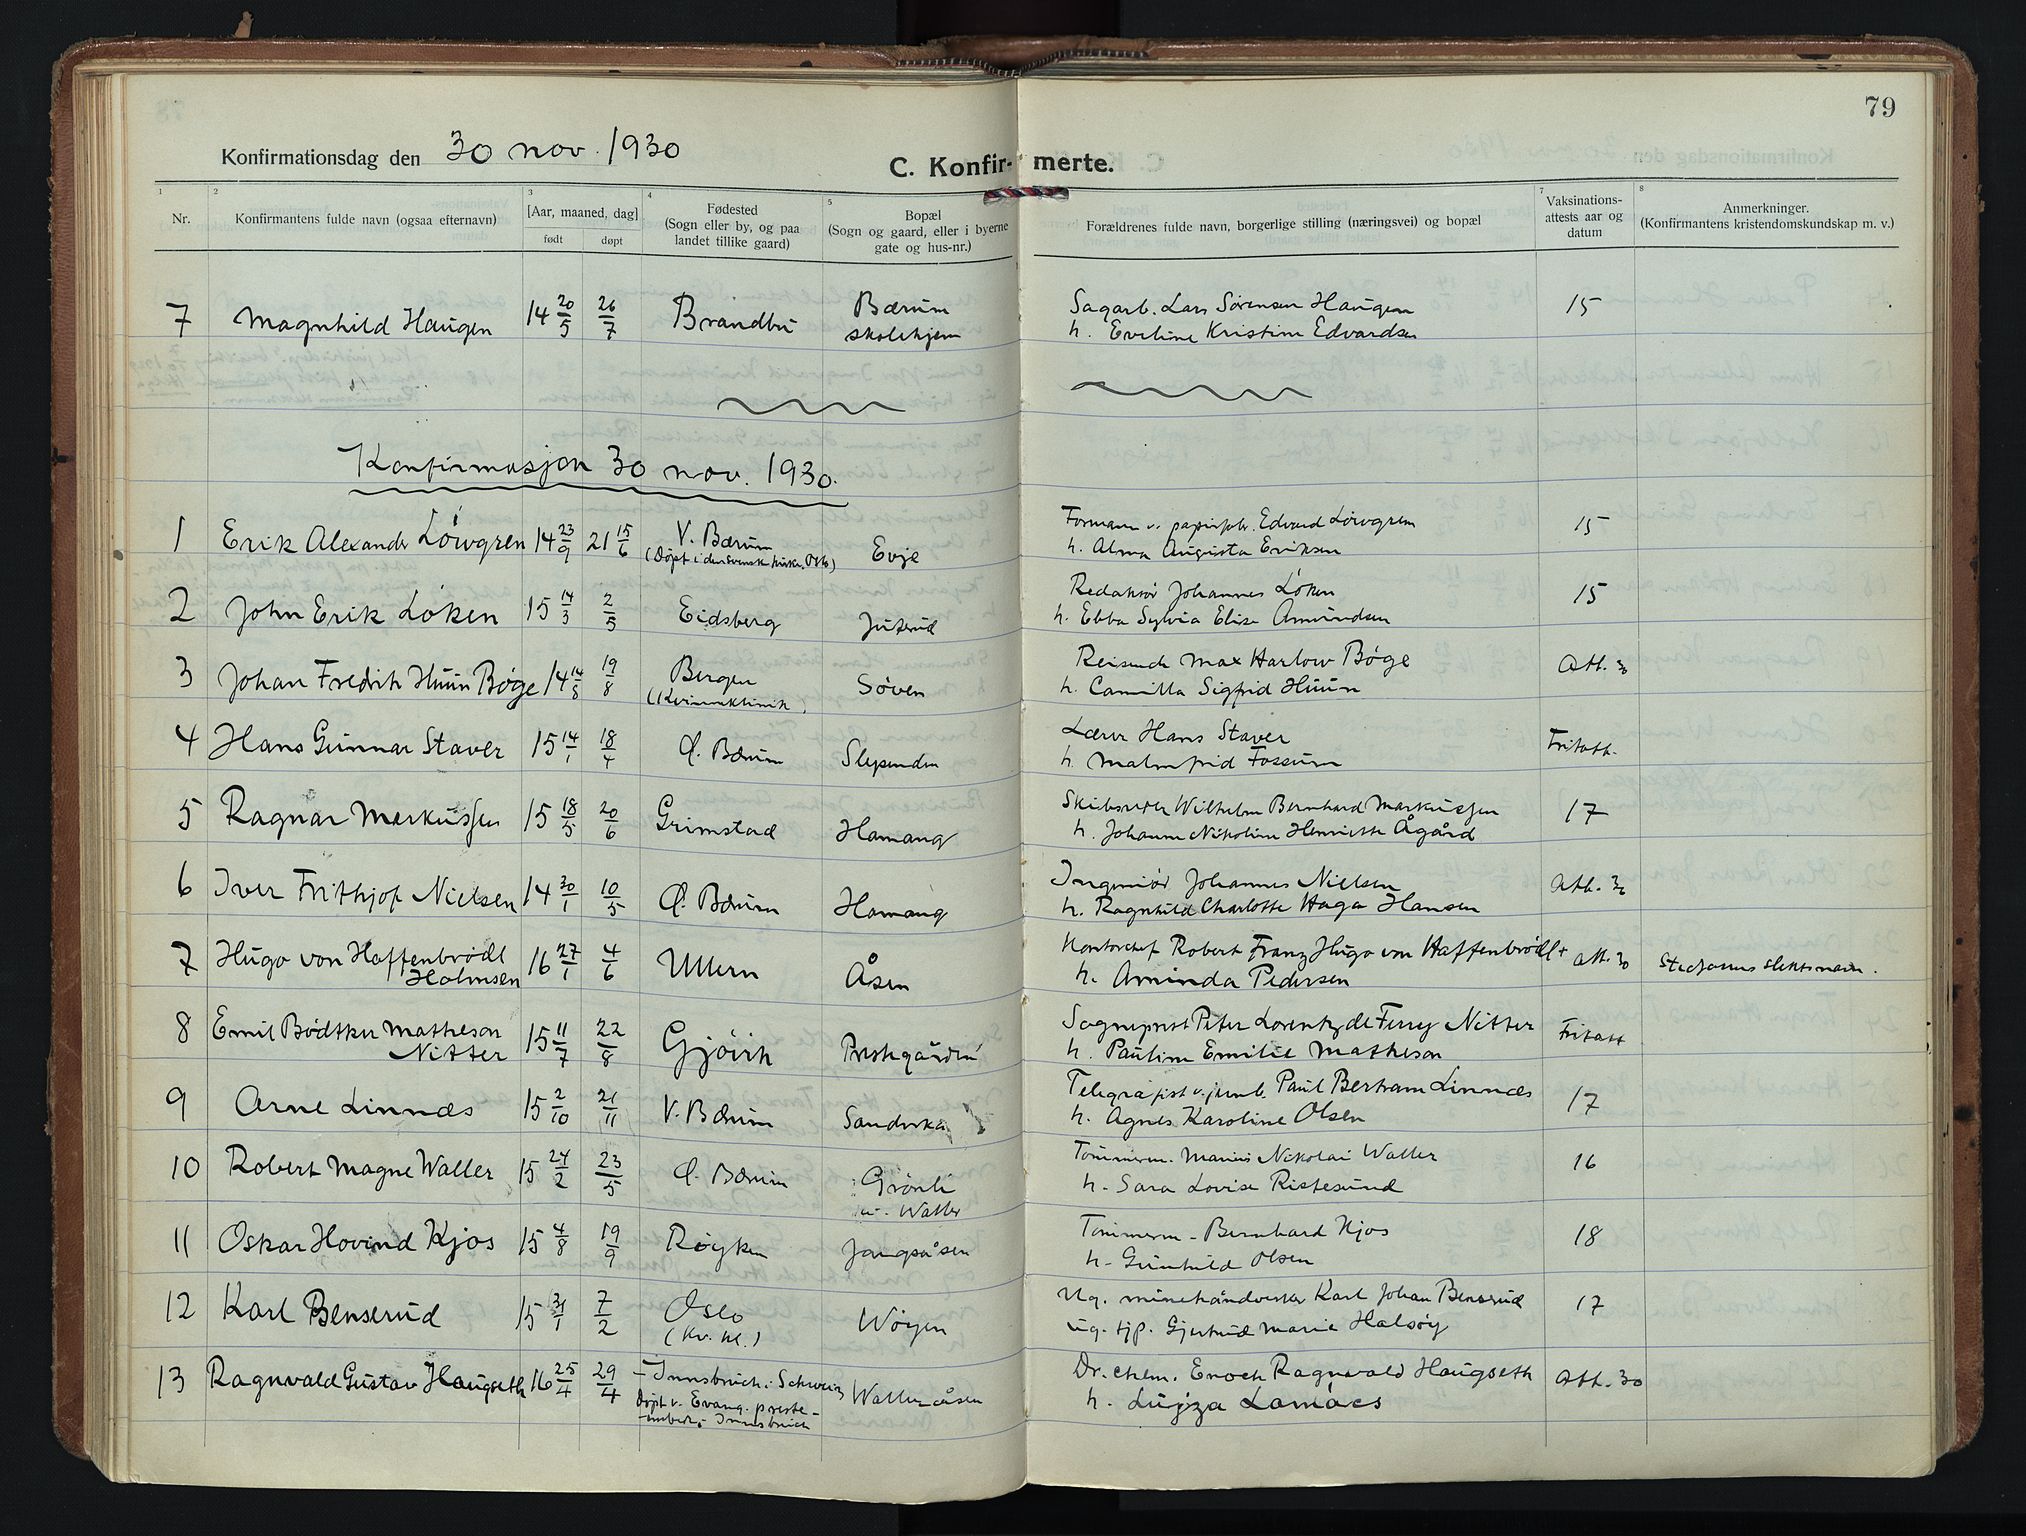 79
Konfirmationsdag den 30 nov. 1930
C. Konfir- merte.
1 2 3 4 5 7 8
Nr.
Konfirmantens fulde navn (ogsaa efternavn)
[Aar, maaned, dag]
født døpt
Fødested
(Sogn eller by, og paa
landet tillike gaard)
Bopæl
(Sogn og gaard, eller i byerne
gate og hus-nr.)
Forældrenes fulde navn, borgerlige stilling (næringsvei) og bopæl
Vaksinations-
attests aar og
datum
Anmerkninger.
(Konfirmantens kristendomskundskap m. v.)
7 Magnhild Haugen 14 20/5 26/7 Brandbu Bærum
skolehjem
Sagarb. Lars Sørensen Haugen
h. Eveline Kristine Edvardsen
15
Konfirmasjon 30 nov. 1930.
1 Erik Alexander Löwgren 14 23/9 21 15/6 V. Bærum
(Døpt i den svenske kirke, Oslo)
Evje
Formann v. papirfabr. Edvard Löwgren
h. Alma Augusta Eriksen
15
2 John Erik Løken 15 14/3 2/5 Eidsberg Juterud
Redaktør Johannes Løken
h. Ebba Sylvia Elise Amundsen
15
3 Johan Fredrik Huun Bøge 14 14/8 19/8 Bergen
(Kvinneklinik)
Søven
Reisende Max Harlow Bøge
h. Camilla Sigfrid Huun
Att. 30
4 Hans Gunnar Staver 15 14/1 18/4 Ø. Bærum Slependen
Lærer Hans Staver
h. Malmfrid Fossum
Fritatt.
5 Ragnar Markussen 15 18/5 20/6 Grimstad Hamang
Skibsreder Wilhelm Bernhard Markussen
h. Johanne Nikoline Henriette Ågård
17
6 Iver Frithjof Nielsen 14 30/1 10/5 Ø. Bærum Hamang
Ingeniør Johannes Nielsen
h. Ragnhild Charlotte Haga Hansen
Att. 30
7 Hugo von Haffenbrödl
Holmsen
16 27/1 4/6 Ullern Åsen
Kontorchef Robert Franz Hugo von Haffenbrödl +
h. Aminda Pedersen
Att. 30 Stedfarens slektsnavn.
8 Emil Bødtker Matheson
Nitter
15 11/7 22/8 Gjøvik Prestegården
Sogneprest Peter Lorentz de Ferry Nitter
h. Pauline Emilie Matheson
Fritatt
9 Arne Linnæs 15 2/10 21/11 V. Bærum Sandvika
Telegrafist v. jernb. Paul Bertram Linnæs
h. Agnes Karoline Olsen
17
10 Robert Magne Waller 15 24/2 23/5 Ø. Bærum Grønli
Waller
Tømmerm. Marius Nikolai Waller
h. Sara Lovise Ristesund
16
11 Oskar Hovind Kjos 15 4/8 19/9 Røyken Jongsåsen
Tømmerm. Bernhard Kjos
h. Gunhild Olsen
18
12 Karl Benserud 15 31/1 7/2 Oslo
(Kv. kl.)
Wøyen
Ug. minehåndverker Karl Johan Benserud
ug. tjp. Gjertrud Marie Halsøy
17
13 Ragnvald Gustav Haugseth 16 25/4 29/4 Innsbruck i Schweiz
Døpt v. Evang. preste-
embede, Innsbruck
Walleråsen
Dr. chem. Enoch Ragnvald Haugseth
h. Lujza Lamács
Att. 30